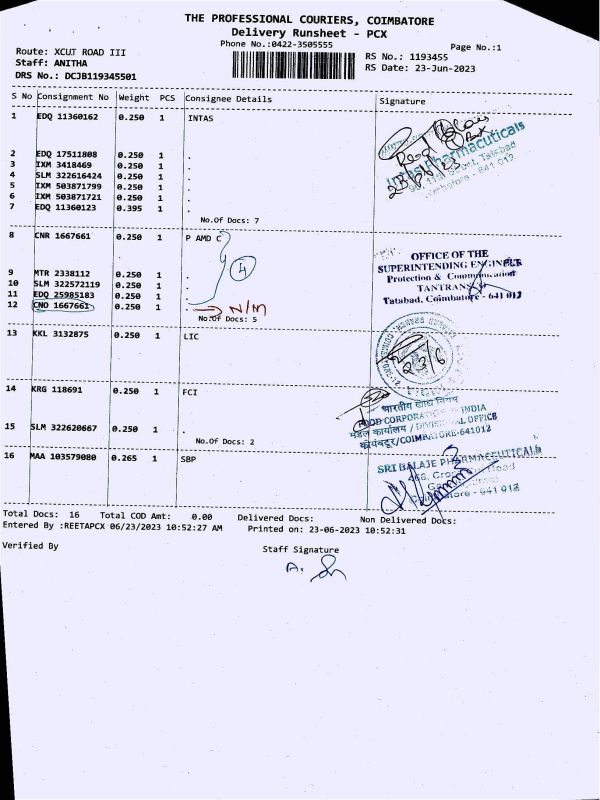 THE PROFESSIONAL COURIERS, COIMBATORE
Delivery Runsheet - PCX
Phone No.:0422-3505555
Page No.:1
Route: XCUT ROAD III
RS No.: 1193455
Staff: ANITHA
RS Date: 23-Jun-2023
DRS No.: DCJB119345501
S No Consignment No Weight PCS Consignee Details Signature
1 EDQ 11360162 0.250 1 INTAS
2 EDQ 17511808 0.250 1 .
3 IXM 3418469 0.250 1 .
4 SLM 322616424 0.250 1 .
5 IXM 503871799 0.250 1 .
6 IXM 503871721 0.250 1 .
7 EDQ 11360123 0.395 1 .
No.Of Docs: 7
Intas Pharmaceuticals
Tatabad
Coimbatore - 641 012
8 CNR 1667661 0.250 1 P AMD C
4
9 MTR 2338112 0.250 1 .
10 SLM 322572119 0.250 1 .
11 EDQ 25985183 0.250 1 .
12 CNO 1667661 0.250 1 . N/M
No.Of Docs: 5
OFFICE OF THE
SUPERINTENDING ENGINEER
Protection & Communication
TANTRANSCO
Tatabad, Coimbatore - 641 012
13 KKL 3132875 0.250 1 LIC
23/6
14 KRG 118691 0.250 1 FCI
15 SLM 322620667 0.250 1 .
No.Of Docs: 2
भारतीय खाद्य निगम
FOOD CORPORATION INDIA
मंडल कार्यालय / DIVISIONAL OFFICE
कोयंबटूर/COIMBATORE-641012
16 MAA 103579080 0.265 1 SBP
SRI BALAJE PHARMACEUTICALS
Road
Coimbatore - 641 012
Total Docs: 16 Total COD Amt: 0.00 Delivered Docs: Non Delivered Docs:
Entered By :REETAPCX 06/23/2023 10:52:27 AM Printed on: 23-06-2023 10:52:31
Verified By
Staff Signature